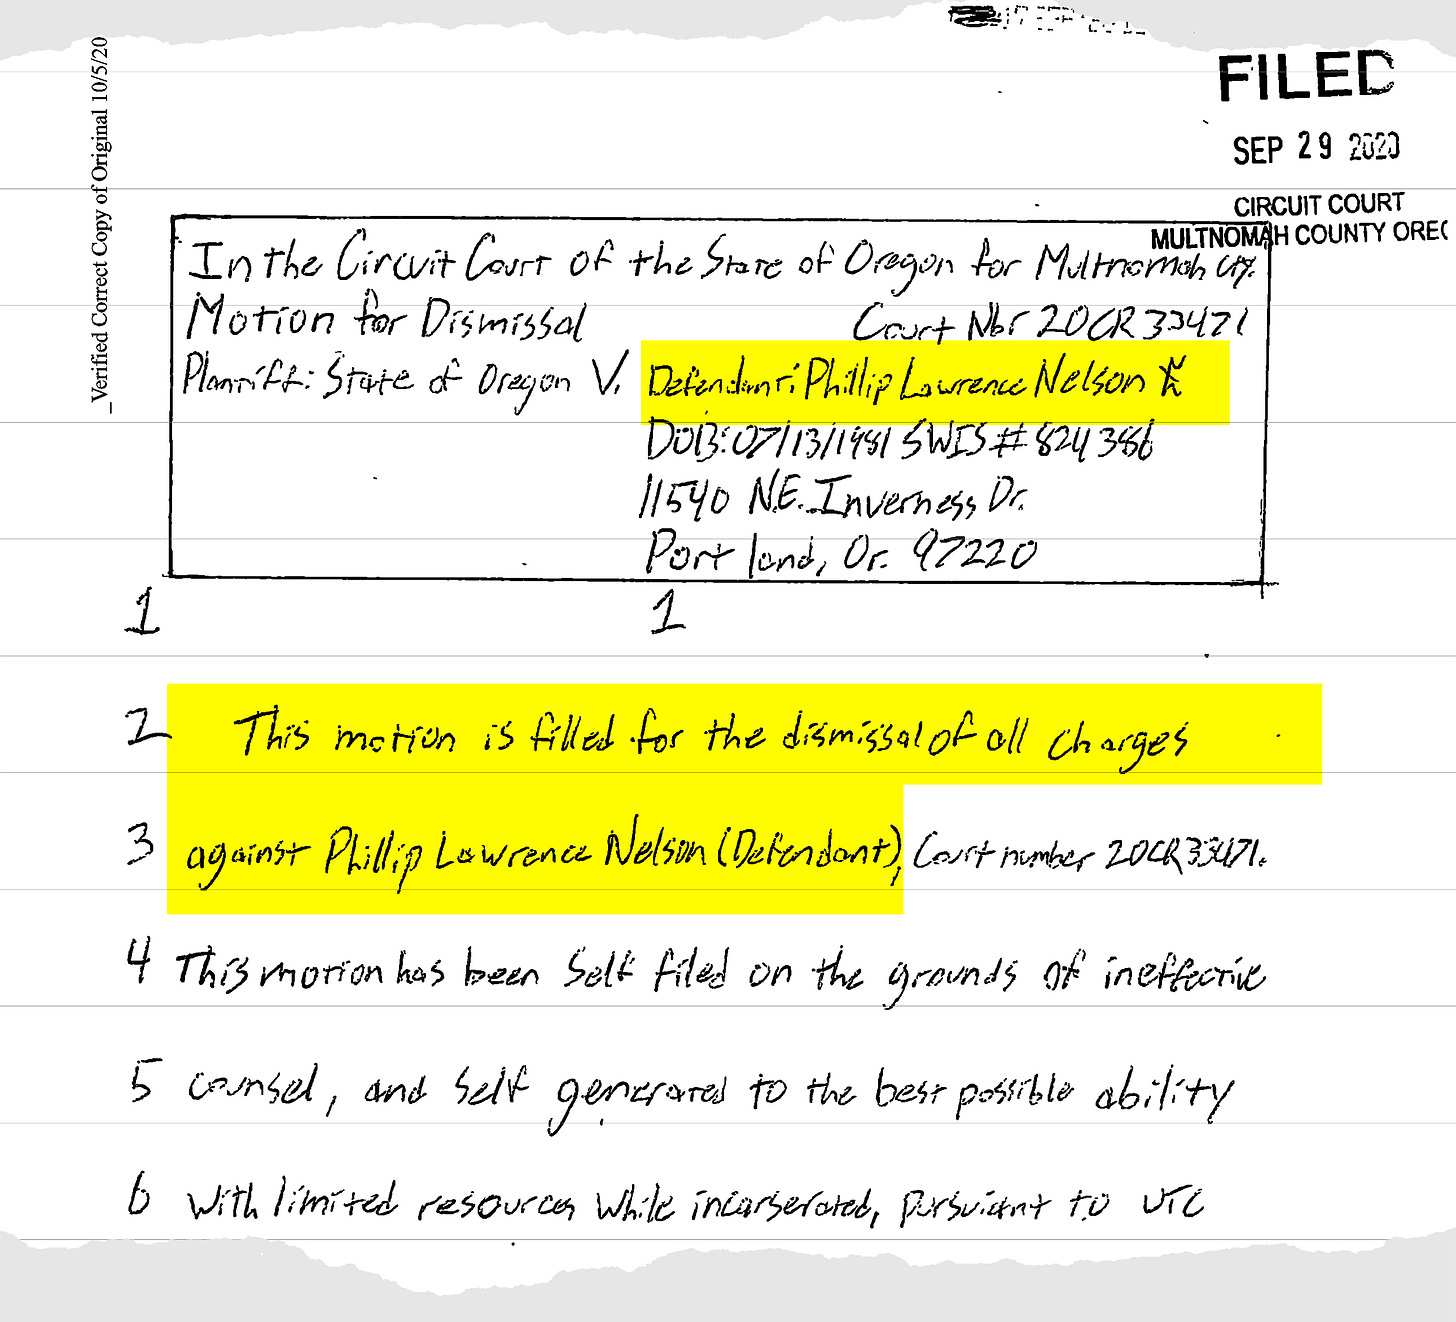 FILED
SEP 29 2020
CIRCUIT COURT
MULTNOMAH COUNTY OREG
_Verified Correct Copy of Original 10/5/20
In the Circuit Court of the State of Oregon for Multnomah cty.
Motion for Dismissal Court Nbr 20CR33471
Plantiff: State of Oregon V. Defendant: Phillip Lawrence Nelson
DOB: 07/13/1981 SWIS # 824386
11540 N.E. Inverness Dr.
Portland, Or. 97220
1 1
2 This motion is filled for the dismissal of all charges
3 against Phillip Lawrence Nelson (Defendant), Court number 20CR33471.
4 This motion has been Self filed on the grounds of ineffective
5 counsel, and Self generated to the best possible ability
6 with limited resources while incarserated, pursuiant to UTC